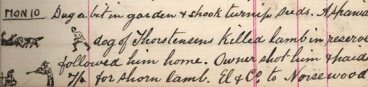 MON 10 Dug a bit in garden & shook turnip seeds. Apparently
dog of Thorstensens killed lamb in reserve
followed him home. Owner shot him & paid
7/6 for shorn lamb. El & Co to Norsewood